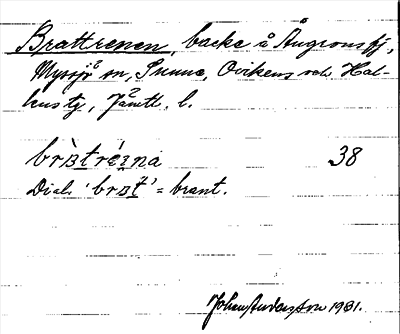 Brattrenen, backe å Ångronsfj,
Myssjö sn, Sunne, Ovikens och Hal-
lens tj, Jämtl. l.
bròtréina 38
Dial. 'brɒt' = brant.
Johan Anderston 1931.